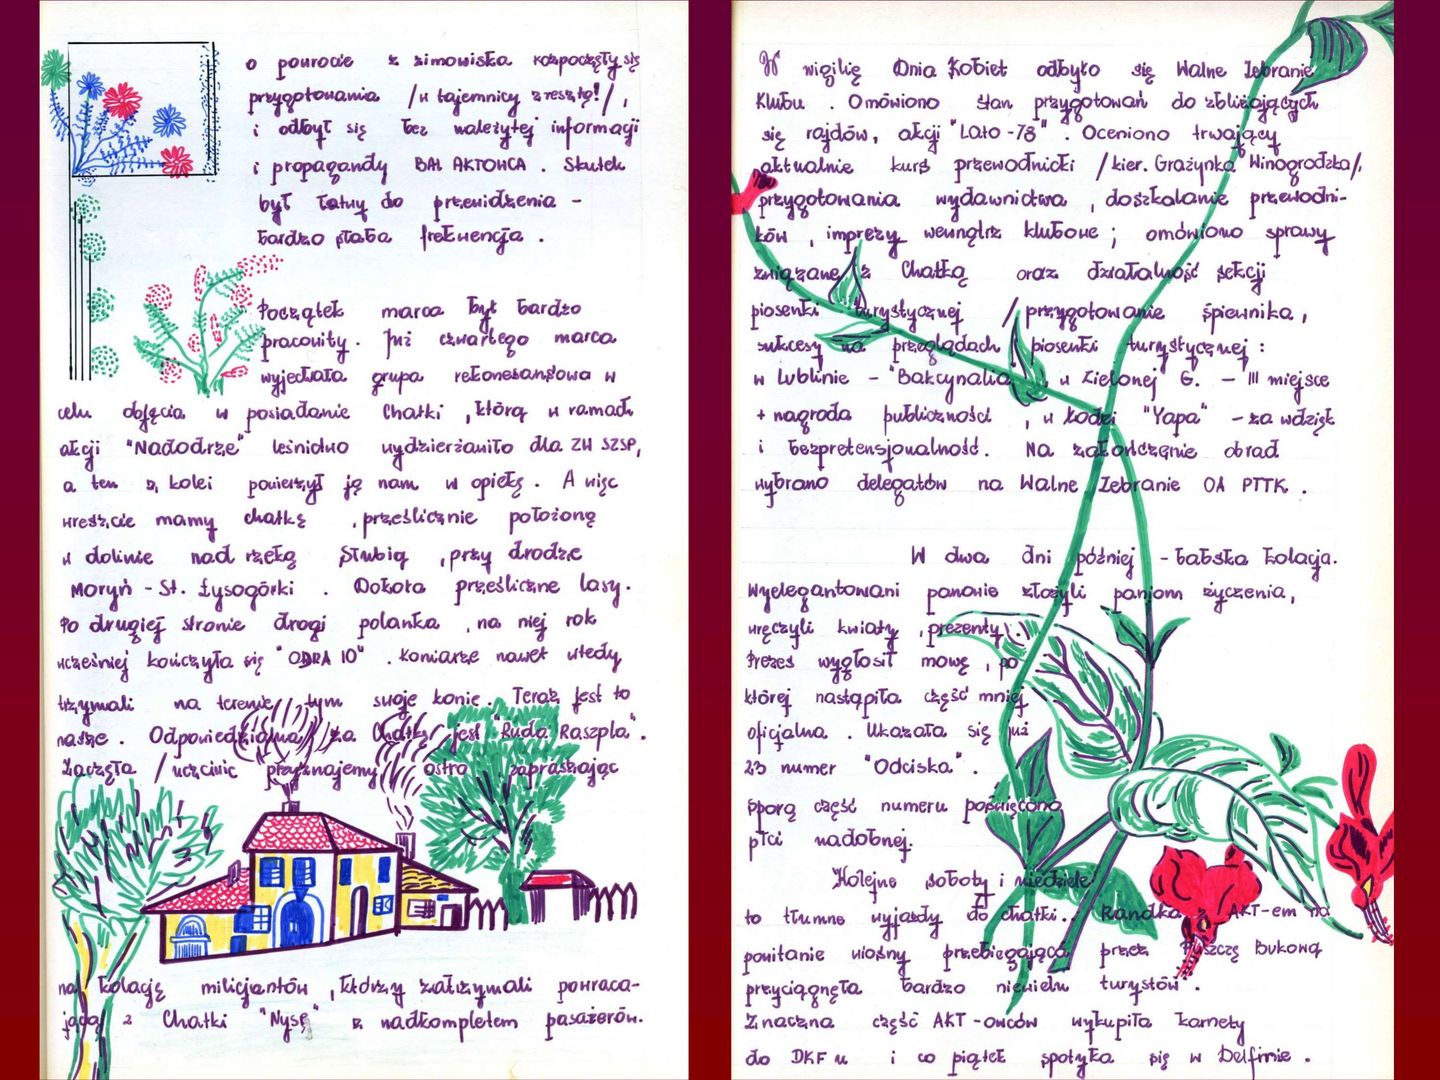 o powrocie z zimowiska rozpoczęły się
przygotowania /w tajemnicy zresztą!/,
i odbył się bez należytej informacji
i propagandy BAL AKTOWCA. Skutek
był łatwy do przewidzenia -
bardzo słaba frekwencja.
Początek marca był bardzo
pracowity. Już czwartego marca
wyjechała grupa rekonesansowa w
celu objęcia w posiadanie Chatki, którą w ramach
akcji "Nadodrze" leśnictwo wydzierżawiło dla ZW SZSP,
a ten z kolei powierzył ją nam w opiekę. A więc
wreszcie mamy chatkę, prześlicznie położoną
w dolinie nad rzeką Słubią, przy drodze
Moryń - St. Łysogórki. Dokoła prześliczne lasy.
Po drugiej stronie drogi polanka, na niej rok
wcześniej kończyła się "ODRA 10". Koniarze nawet wtedy
trzymali na terenie tym swoje konie. Teraz jest to
nasze. Odpowiedzialna za Chatkę jest "Ruda Raszpla".
Zaczęła /uczciwie przyznajemy/ ostro zapraszając
na kolację milicjantów, którzy zatrzymali powraca-
jącą z Chatki "Nysę" z nadkompletem pasażerów.
W wigilię Dnia Kobiet odbyło się Walne Zebranie
Klubu. Omówiono stan przygotowań do zbliżających
się rajdów, akcji "Lato-78". Oceniono trwający
aktualnie kurs przewodnicki /kier. Grażynka Winogrodzka/,
przygotowania wydawnictwa, doszkalanie przewodni-
ków, imprezy wewnątrz klubowe; omówiono sprawy
związane z Chatką oraz działalność sekcji
piosenki turystycznej /przygotowanie śpiewnika,
sukcesy na przeglądach piosenki turystycznej:
w Lublinie - "Bakcynalia", w Zielonej G. - III miejsce
+ nagroda publiczności, w Łodzi "Yapa" - za wdzięk
i bezpretensjonalność. Na zakończenie obrad
wybrano delegatów na Walne Zebranie OA PTTK.
W dwa dni później - babska kolacja.
Wyelegantowani panowie złożyli paniom życzenia,
wręczyli kwiaty, prezenty.
Prezes wygłosił mowę, po
której nastąpiła część mniej
oficjalna. Ukazała się już
23 numer "Odciska".
Sporą część numeru poświęcono
płci nadobnej.
Kolejne soboty i niedziele
to tłumne wyjazdy do chatki... Randka z AKT-em na
powitanie wiosny przebiegająca przez Puszczę Bukową
przyciągnęła bardzo niewielu turystów".
Znaczna część AKT-owców wykupiła karnety
do DKF u i co piątek spotyka się w Delfinie.